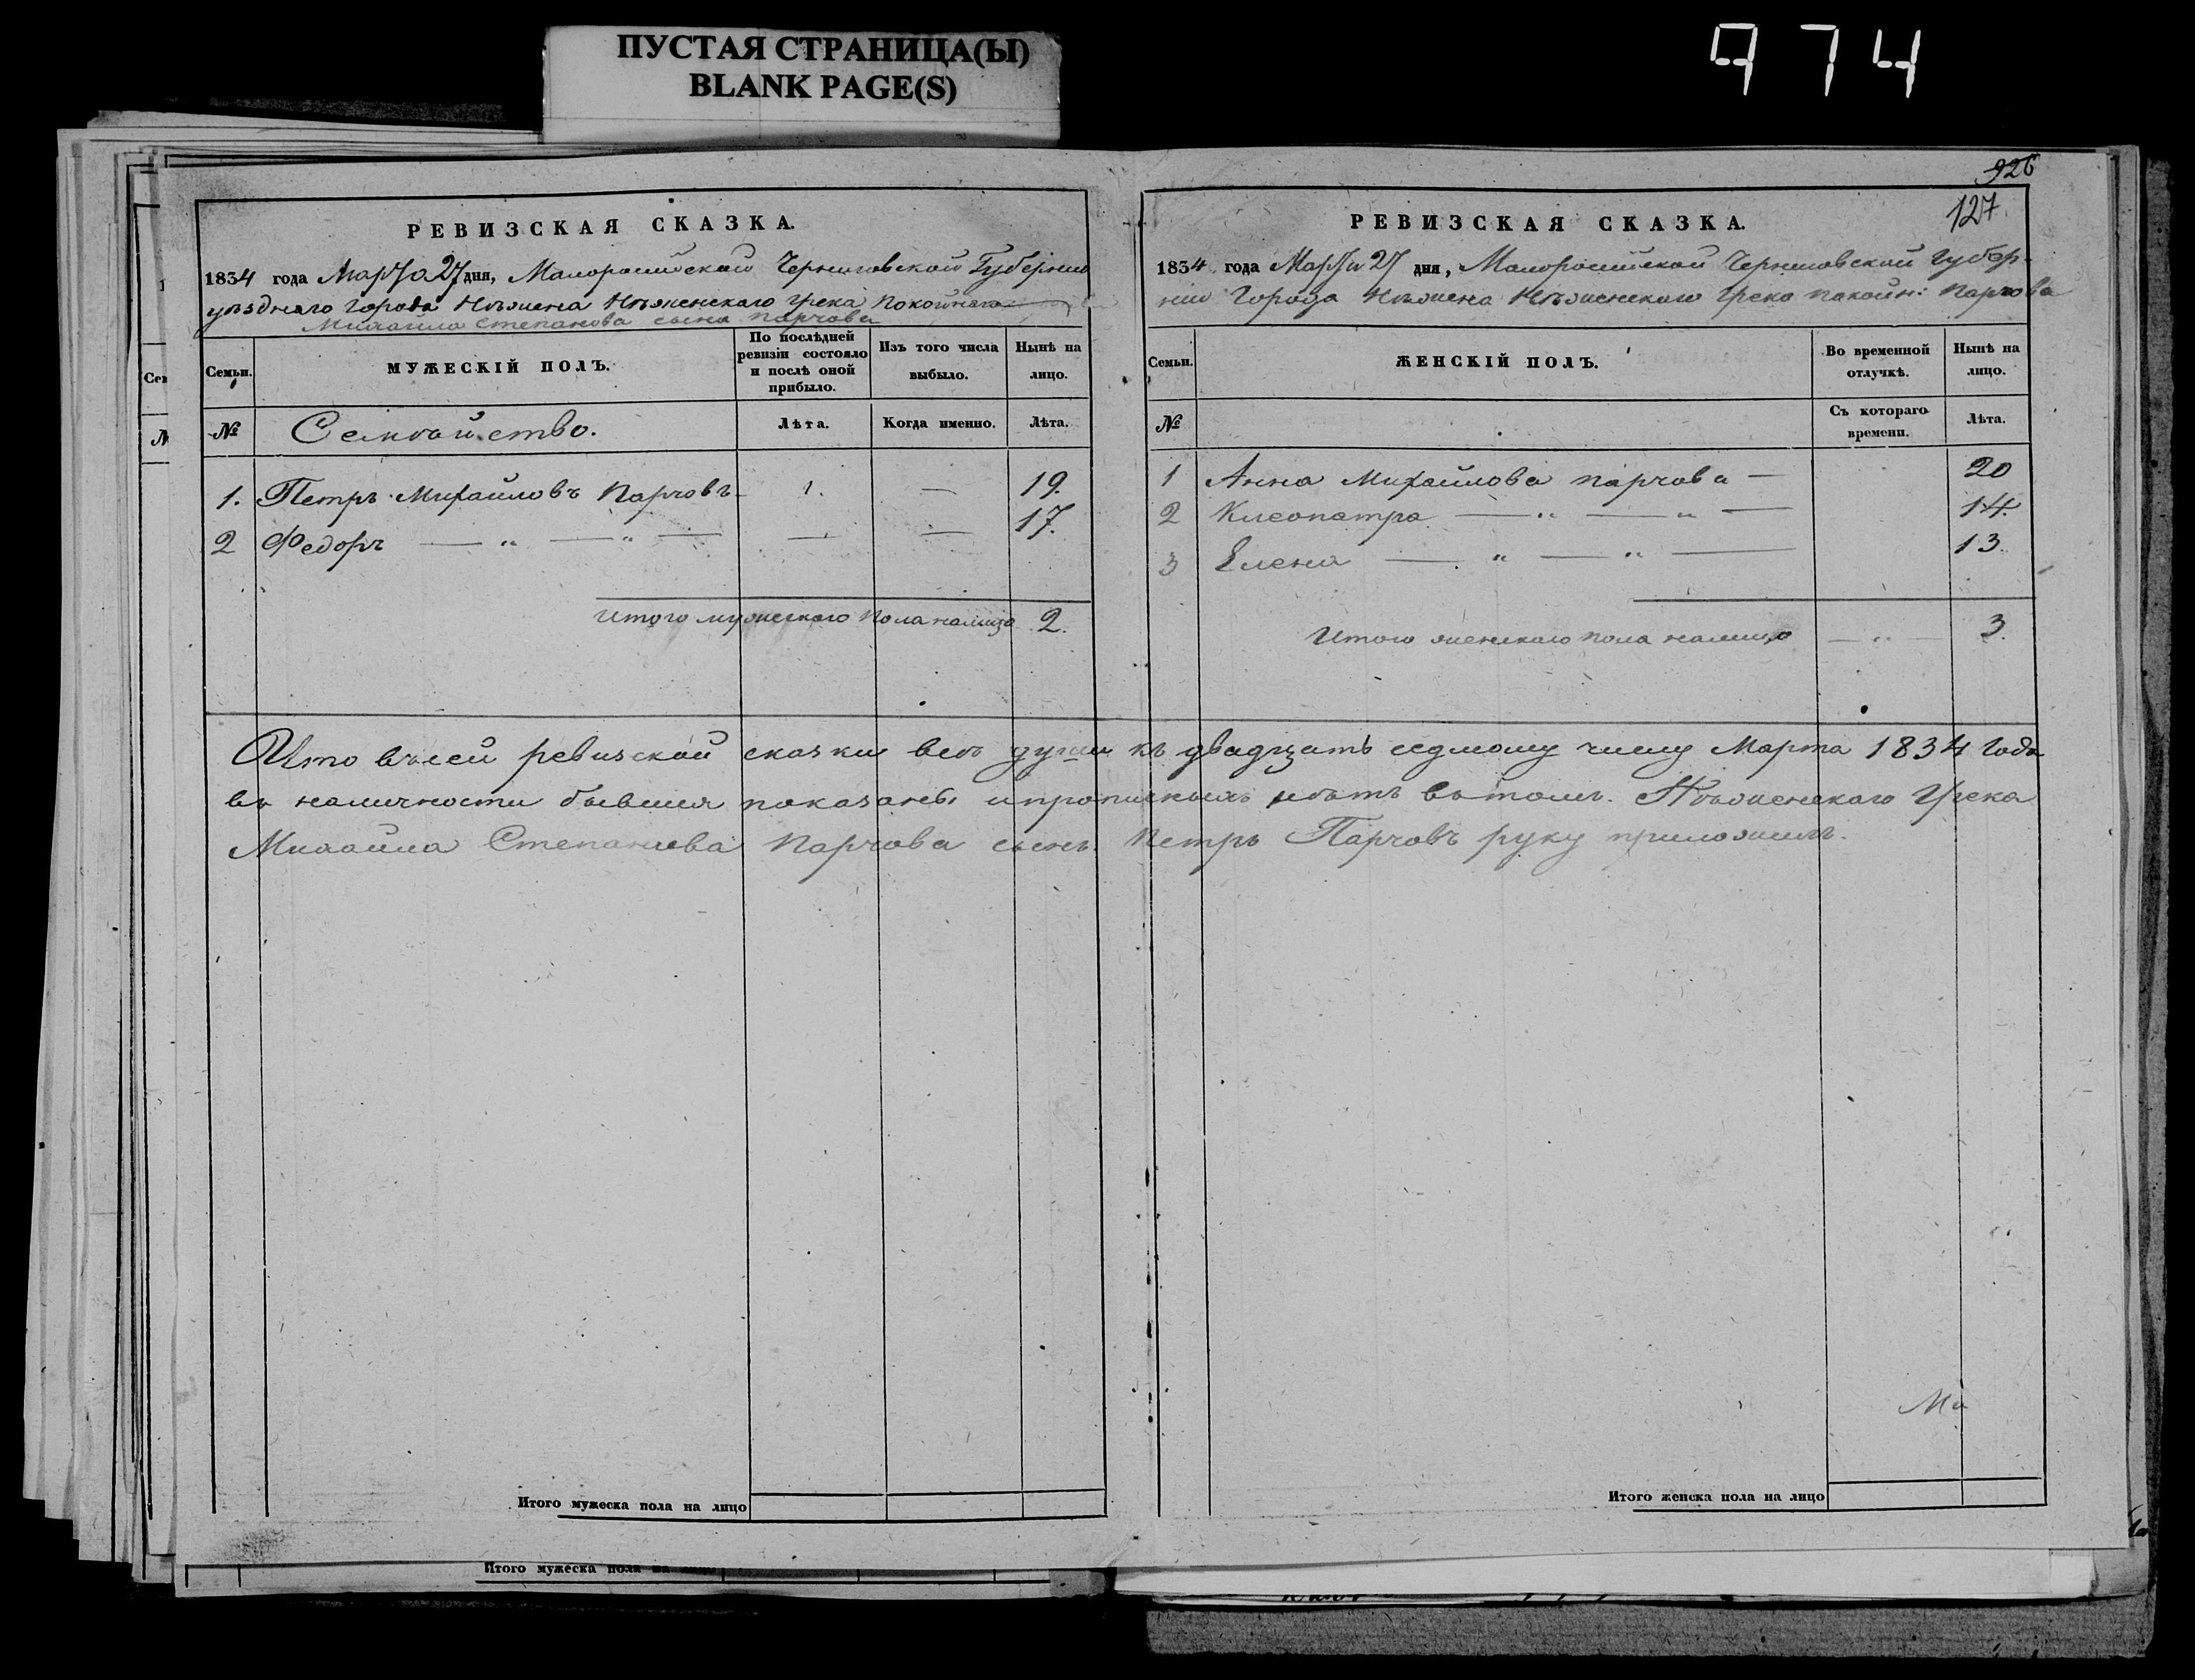 ПУСТАЯ СТРАНИЦА(Ы)
BLANK PAGE(S)
974
926
127.
РЕВИЗСКАЯ СКАЗКА.
1834 года Марта 27 дня, Малоросийской Черниговской Губерніи
уѣзднаго Города Нѣжина Нѣженскаго грека Покойнаго
Михайла Степанова сына Парчова
Семьи. МУЖЕСКІЙ ПОЛЪ. По послѣдней ревизіи состояло и послѣ оной прибыло. Изъ того числа выбыло. Нынѣ на лицо.
№ Семѣйство. Лѣта. Когда именно. Лѣта.
1. Петръ Михайловъ Парчовъ 1. — 19.
2 Федоръ — „ — „ — — — 17.
Итого мужескаго Пола налицо 2.
РЕВИЗСКАЯ СКАЗКА.
1834 года Марта 27 дня, Малоросийской Черниговской Губер-
ніи Города Нѣжена Нѣженскаго Грека покойн: Парчова
Семьи. ЖЕНСКІЙ ПОЛЪ. Во временной отлучкѣ. Нынѣ на лицо.
№ Съ котораго времени. Лѣта.
1 Анна Михайлова Парчова — 20
2 Клеопатра — „ — „ — 14.
3 Елена — „ — „ — 13.
Итого женскаго пола налицо — „ — 3.
Что въсей ревизской сказки всѣ души къ двадцать седмому числу Марта 1834 Года
въ наличности бывшия показаны и прописныхъ нѣтъ вътомъ. Нѣженскаго Грека
Михайла Степанова Парчова сынъ Петръ Парчовъ руку приложилъ.
Итого мужеска пола на лицо
Итого женска пола на лицо
Итого мужеска пола на